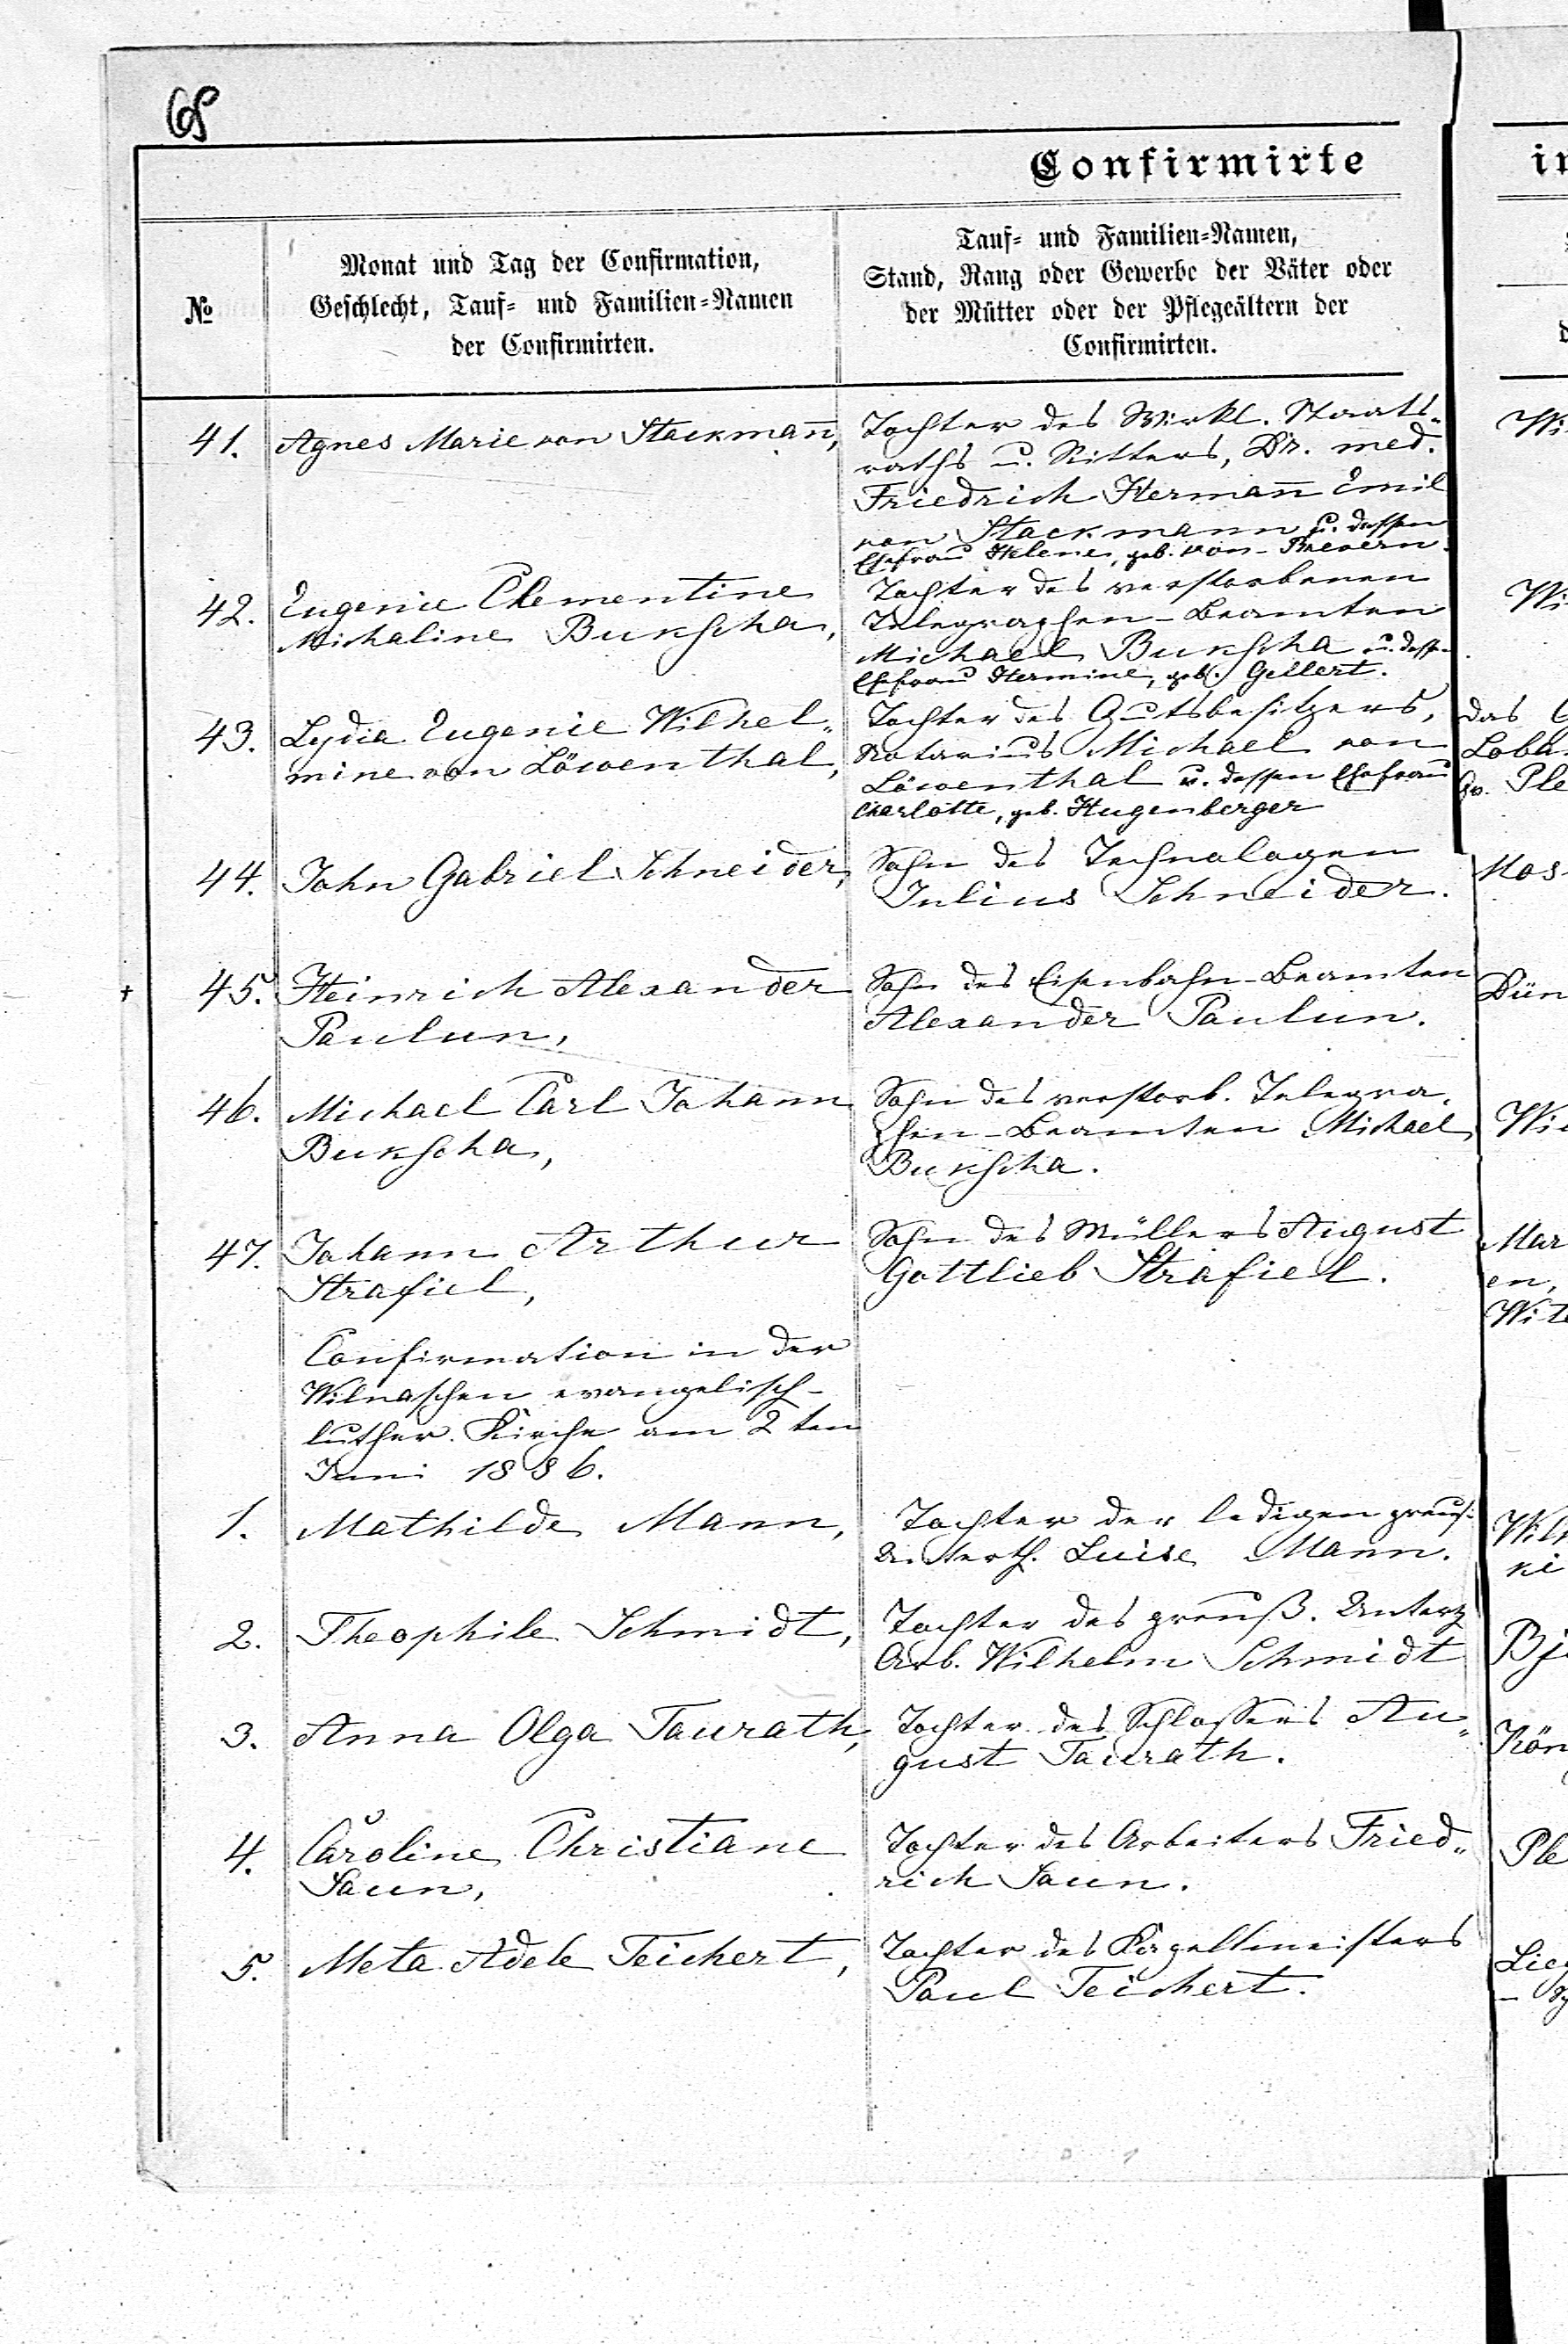 68
Confirmirte
№
Monat und Tag der Confirmation,
Geschlecht, Tauf- und Familien-Namen
der Confirmirten.
Tauf- und Familien-Namen,
Stand, Rang oder Gewerbe der Väter oder
der Mütter oder der Pflegeältern der
Confirmirten.
41. Agnes Marie von Stackman̅,
Tochter des Wirkl. Staats-
raths u. Ritters, Dr. med.
Friedrich Herman̅ Emil
von Stackmann u. dessen
Ehefrau Helene, geb. von Brevern.
42. Eugenie Clementine
Michaline Bukscha,
Tochter des verstorbenen
Telegraphen-Beamten
Michael Bukscha u. dessen
Ehefrau Hermine, geb. Gellert.
43. Lydia Eugenie Wilhel-
mine von Löwenthal,
Tochter des Gutsbesitzers,
Notarius Michael von
Löwenthal u. dessen Ehefrau
Charlotte, geb. Hugenberger
Das
44. John Gabriel Schneider,
Sohn des Technologen
Julius Schneider.
45. Heinrich Alexander
Paulun,
Sohn des Eisenbahn-Beamten
Alexander Paulun.
46. Michael Carl Johann
Bukscha,
Sohn des verstorb. Telegra-
phen-Beamten Michael
Bukscha.
47. Johann Arthur
Strafiel,
Sohn des Müllers August
Gottlieb Strafiel.
Confirmation in der
Wilnaschen evangelisch-
luther. Kirche am 2ten
Juni 1886.
1. Mathilde Mann,
Tochter der ledigen preuß.
Unterth. Luise Mann.
2. Theophile Schmidt,
Tochter des preuß. Unterth.
Arb. Wilhelm Schmidt
3. Anna Olga Taurath,
Tochter des Schlossers Au-
gust Taurath.
4. Caroline Christiane
Saun,
Tochter des Arbeiters Fried-
rich Saun.
5. Meta Adele Teichert,
Tochter des Kapellmeisters
Paul Teichert.